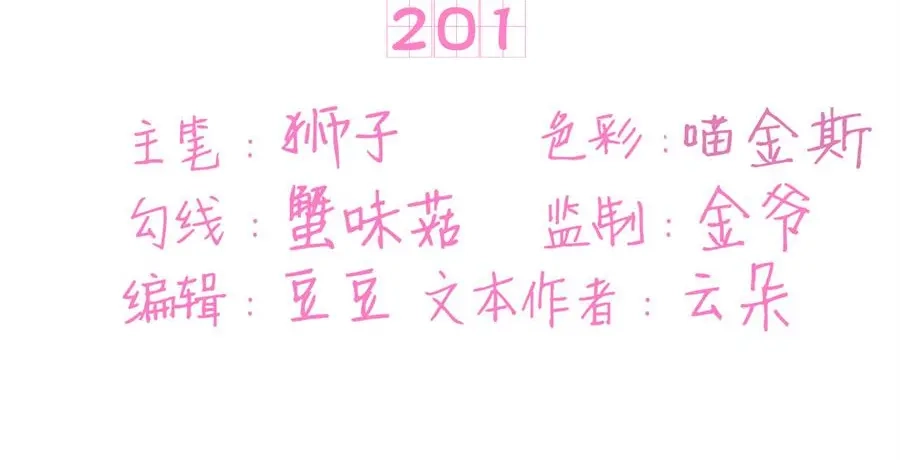 201
主笔：狮子 色彩：喵金斯
勾线：蟹味菇 监制：金爷
编辑：豆豆 文本作者：云朵